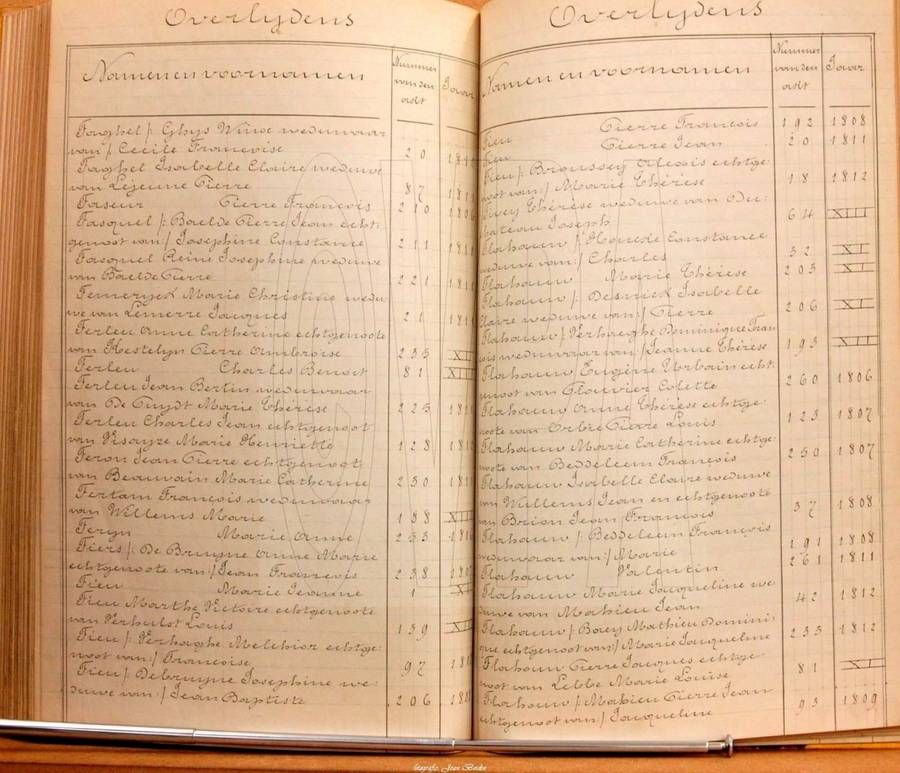 Overlijdens
Namen en voornamen
Nummer
van den
acte
Jaar
Faghel /: Ghys Winoc weduwnaar
van :/ Cécile Françoise 20
Faghel Isabelle Claire weduwe
van Lejeune Pierre 87
Faseur Pierre François 210
Fasquel /: Baelde Pierre Jean echt-
genoot van :/ Josephine Constance 211
Fasquel Reine Josephine weduwe
van Baelde Pierre 221
Femeryck Marie Christine wedu-
we van Lemerre Jacques 21
Ferleu Anne Catherine echtgenoote
van Hostelyn Pierre Ambroise 235 XII
Ferleu Charles Benoit 81 XIII
Ferleu Jean Bertin weduwnaar
van De Cuydt Marie Thérèse 225
Ferleu Charles Jean echtgenoot
van Visayze Marie Henriette 128
Feron Jean Pierre echtgenoot
van Beauvain Marie Catherine 230
Fertam François weduwnaar
van Willems Marie 188 XIII
Feryn Marie Anne 233
Fiers /: De Bruyne Anne Marie
echtgenoote van :/ Jean François 238
Fieu Marie Jeanne 1 XI
Fieu Marthe Victoire echtgenoote
van Verhulst Louis 139 XII
Fieu /: Verhaghe Melchior echtge-
noot van :/ Françoise 97
Fieu /: Debruyne Josephine we-
duwe van :/ Jean Baptiste 206
Overlijdens
Namen en voornamen
Nummer
van den
acte
Jaar
Fieu Pierre François 192 1808
Fieu Pierre Jean 20 1811
Fieu /: Broussey Alexis echtge-
noot van :/ Marie Thérèse 18 1812
Thérèse weduwe van Du-
chateau Joseph 64 XIII
Flahauw /: Constance
weduwe van :/ Charles 32 XI
Flahauw Marie Thérèse 203 XI
Flahauw /: Desnick Isabelle
Claire weduwe van :/ Pierre 206 XI
Flahauw /: Verhaeghe Dominique Fran-
cois weduwnaar van :/ Jeanne Thérèse 193 XIII
Flahauw Eugène Urbain echt-
genoot van Glouvier Colette 260 1806
Flahauw Anne Thérèse echtge-
noote van Orbie Pierre Louis 123 1807
Flahauw Marie Catherine echtge-
noote van Beddeleem François 250 1807
Flahauw Isabelle Claire weduwe
van Wullems Jean en echtgenoote
van Brion Jean François 37 1808
Flahauw /: Beddeleem François
weduwnaar van :/ Marie 191 1808
Flahauw Valentin 261 1811
Flahauw Marie Jacqueline we-
duwe van Mahieu Jean 42 1812
Flahauw /: Boey Mathieu Domini-
que echtgenoot van :/ Marie Jacqueline 233 1812
Flahauw Pierre Jacques echtge-
noot van Lebbe Marie Louise 81 XII
Flahauw /: Mahieu Pierre Jean
echtgenoot van :/ Jacqueline 93 1809